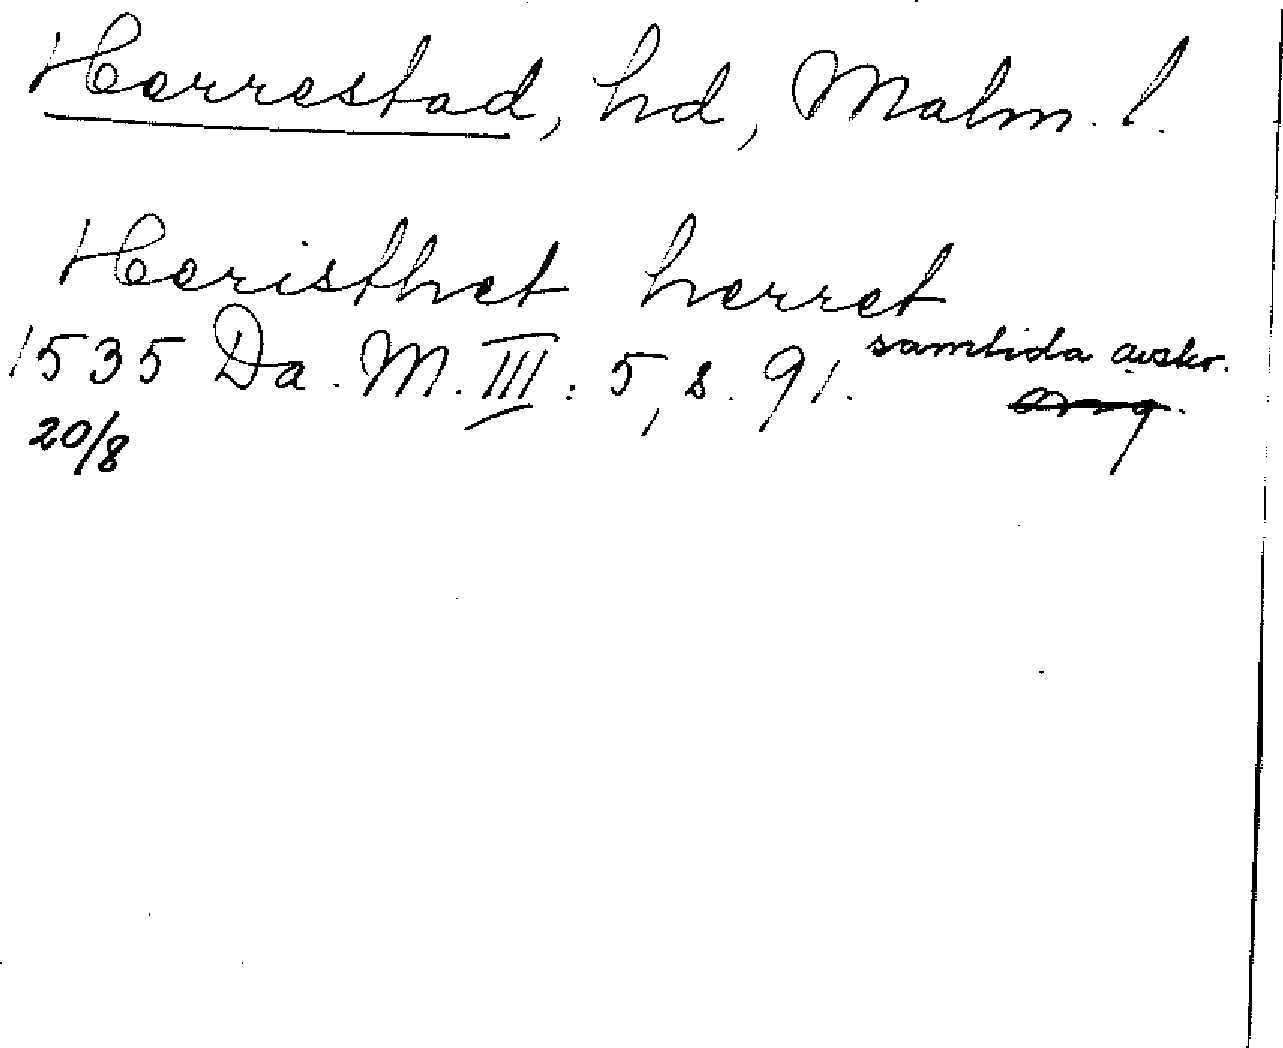 Herrestad, hd, Malm. l.
Heristhet herret
1535 Da. M. III: 5, s. 91. samtida avskr.
20/8